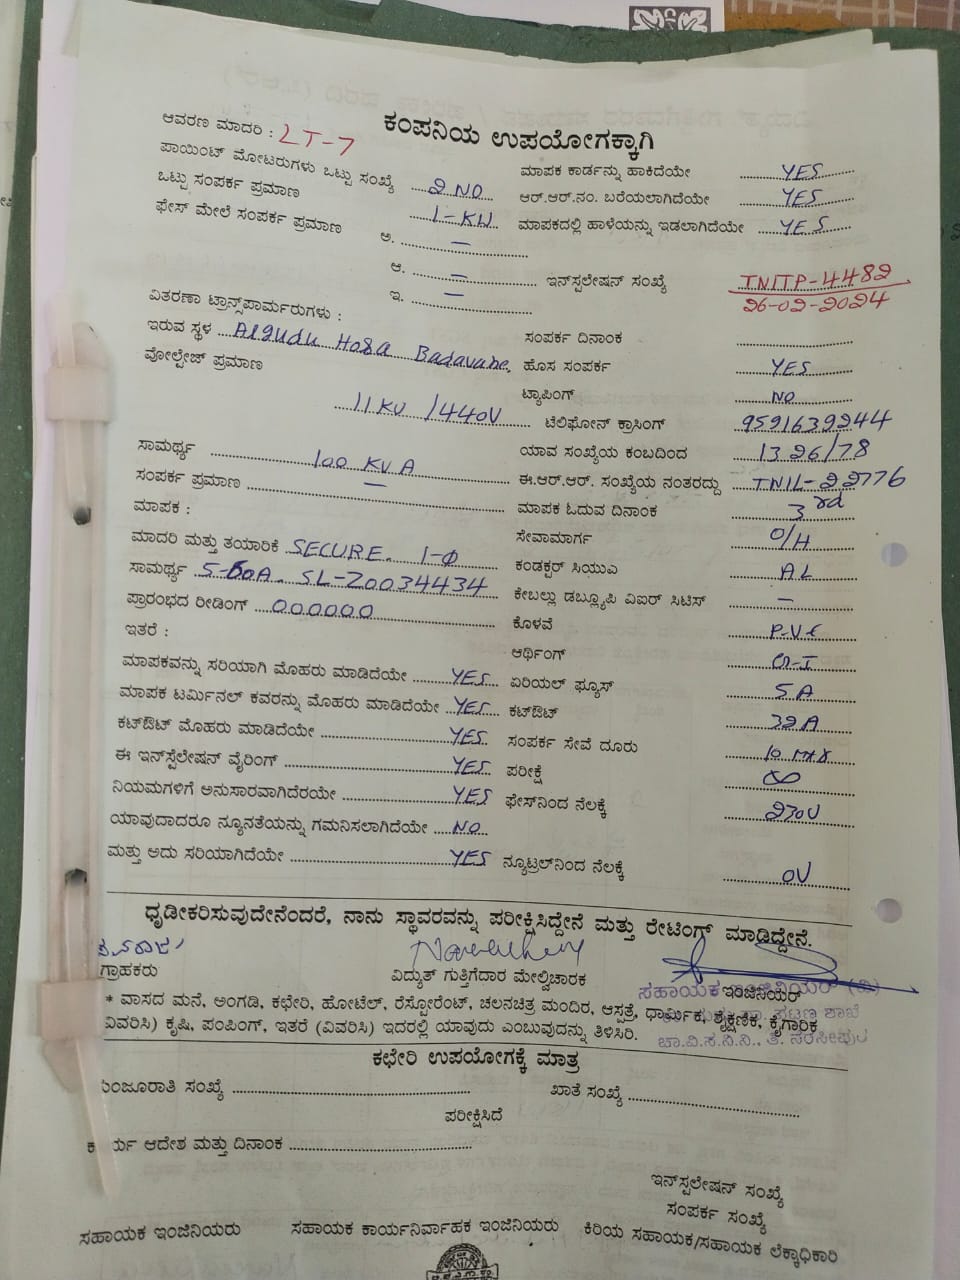 ಕಂಪನಿಯ ಉಪಯೋಗಕ್ಕಾಗಿ
ಆವರಣ ಮಾದರಿ : LT-7
ಪಾಯಿಂಟ್ ಮೋಟರುಗಳು ಒಟ್ಟು ಸಂಖ್ಯೆ 2 NO
ಒಟ್ಟು ಸಂಪರ್ಕ ಪ್ರಮಾಣ 1-KW
ಫೇಸ್ ಮೇಲೆ ಸಂಪರ್ಕ ಪ್ರಮಾಣ ಅ. –
ಆ. –
ಇ. –
ವಿತರಣಾ ಟ್ರಾನ್ಸ್‌ಪಾರ್ಮರುಗಳು :
ಇರುವ ಸ್ಥಳ Algudu Hosa Badavane
ವೋಲ್ಟೇಜ್ ಪ್ರಮಾಣ
11 KV / 440V
ಸಾಮರ್ಥ್ಯ 100 KVA
ಸಂಪರ್ಕ ಪ್ರಮಾಣ –
ಮಾಪಕ :
ಮಾದರಿ ಮತ್ತು ತಯಾರಿಕೆ SECURE. 1-Φ
ಸಾಮರ್ಥ್ಯ 5-60A. SL-Z0034434
ಪ್ರಾರಂಭದ ರೀಡಿಂಗ್ 000000
ಇತರೆ :
ಮಾಪಕವನ್ನು ಸರಿಯಾಗಿ ಮೊಹರು ಮಾಡಿದೆಯೇ YES
ಮಾಪಕ ಟರ್ಮಿನಲ್ ಕವರನ್ನು ಮೊಹರು ಮಾಡಿದೆಯೇ YES
ಕಟ್‌ಔಟ್ ಮೊಹರು ಮಾಡಿದೆಯೇ YES
ಈ ಇನ್‌ಸ್ಟೆಲೇಷನ್ ವೈರಿಂಗ್ YES
ನಿಯಮಗಳಿಗೆ ಅನುಸಾರವಾಗಿದೆರಯೇ YES
ಯಾವುದಾದರೂ ನ್ಯೂನತೆಯನ್ನು ಗಮನಿಸಲಾಗಿದೆಯೇ NO
ಮತ್ತು ಅದು ಸರಿಯಾಗಿದೆಯೇ YES
ಮಾಪಕ ಕಾರ್ಡನ್ನು ಹಾಕಿದೆಯೇ YES
ಆರ್.ಆರ್.ನಂ. ಬರೆಯಲಾಗಿದೆಯೇ YES
ಮಾಪಕದಲ್ಲಿ ಹಾಳೆಯನ್ನು ಇಡಲಾಗಿದೆಯೇ YES
ಇನ್‌ಸ್ಟಲೇಷನ್ ಸಂಖ್ಯೆ TNITP-4482
26-02-2024
ಸಂಪರ್ಕ ದಿನಾಂಕ
ಹೊಸ ಸಂಪರ್ಕ YES
ಟ್ಯಾಪಿಂಗ್ NO
ಟೆಲಿಫೋನ್ ಕ್ರಾಸಿಂಗ್ 9591639244
ಯಾವ ಸಂಖ್ಯೆಯ ಕಂಬದಿಂದ 1326/78
ಈ.ಆರ್.ಆರ್. ಸಂಖ್ಯೆಯ ನಂತರದ್ದು TNIL-22776
ಮಾಪಕ ಓದುವ ದಿನಾಂಕ 3rd
ಸೇವಾಮಾರ್ಗ O/H
ಕಂಡಕ್ಟರ್ ಸಿಯುವಿ AL
ಕೇಬಲ್ಲು ಡಬ್ಲ್ಯೂಪಿ ವಿಐರ್ ಸಿಟಿಸ್ –
ಕೊಳವೆ P.V.C
ಆರ್ಥಿಂಗ್ G-I
ಏರಿಯಲ್ ಫ್ಯೂಸ್ 5A
ಕಟ್‌ಔಟ್ 32A
ಸಂಪರ್ಕ ಸೇವೆ ದೂರು 10
ಪರೀಕ್ಷೆ
ಫೇಸ್‌ನಿಂದ ನೆಲಕ್ಕೆ 230V
ನ್ಯೂಟ್ರಲ್‌ನಿಂದ ನೆಲಕ್ಕೆ 0V
ಧೃಡೀಕರಿಸುವುದೇನೆಂದರೆ, ನಾನು ಸ್ಥಾವರವನ್ನು ಪರೀಕ್ಷಿಸಿದ್ದೇನೆ ಮತ್ತು ರೇಟಿಂಗ್ ಮಾಡಿದ್ದೇನೆ.
ಗ್ರಾಹಕರು ವಿದ್ಯುತ್ ಗುತ್ತಿಗೆದಾರ ಮೇಲ್ವಿಚಾರಕ ಇಂಜಿನಿಯರ್
ಸಹಾಯಕ ಇಂಜಿನಿಯರ್ (ವಿ)
* ವಾಸದ ಮನೆ, ಅಂಗಡಿ, ಕಛೇರಿ, ಹೋಟೆಲ್, ರೆಸ್ಟೋರೆಂಟ್, ಚಲನಚಿತ್ರ ಮಂದಿರ, ಆಸ್ಪತ್ರೆ, ಧಾರ್ಮಿಕ, ಶೈಕ್ಷಣಿಕ, ಕೈಗಾರಿಕ
ವಿವರಿಸಿ) ಕೃಷಿ, ಪಂಪಿಂಗ್, ಇತರೆ (ವಿವರಿಸಿ) ಇದರಲ್ಲಿ ಯಾವುದು ಎಂಬುವುದನ್ನು ತಿಳಿಸಿರಿ.
ಪಟ್ಟಣ ಶಾಖೆ
ಚಾ.ವಿ.ಸ.ನಿ.ನಿ., ತಿ. ನರಸೀಪುರ
ಕಛೇರಿ ಉಪಯೋಗಕ್ಕೆ ಮಾತ್ರ
ಮಂಜೂರಾತಿ ಸಂಖ್ಯೆ ಖಾತೆ ಸಂಖ್ಯೆ
ಪರೀಕ್ಷಿಸಿದೆ
ಕಾರ್ಯ ಆದೇಶ ಮತ್ತು ದಿನಾಂಕ
ಇನ್‌ಸ್ಟಲೇಷನ್ ಸಂಖ್ಯೆ
ಸಂಪರ್ಕ ಸಂಖ್ಯೆ
ಸಹಾಯಕ ಇಂಜಿನಿಯರು ಸಹಾಯಕ ಕಾರ್ಯನಿರ್ವಾಹಕ ಇಂಜಿನಿಯರು ಕಿರಿಯ ಸಹಾಯಕ/ಸಹಾಯಕ ಲೆಕ್ಕಾಧಿಕಾರಿ